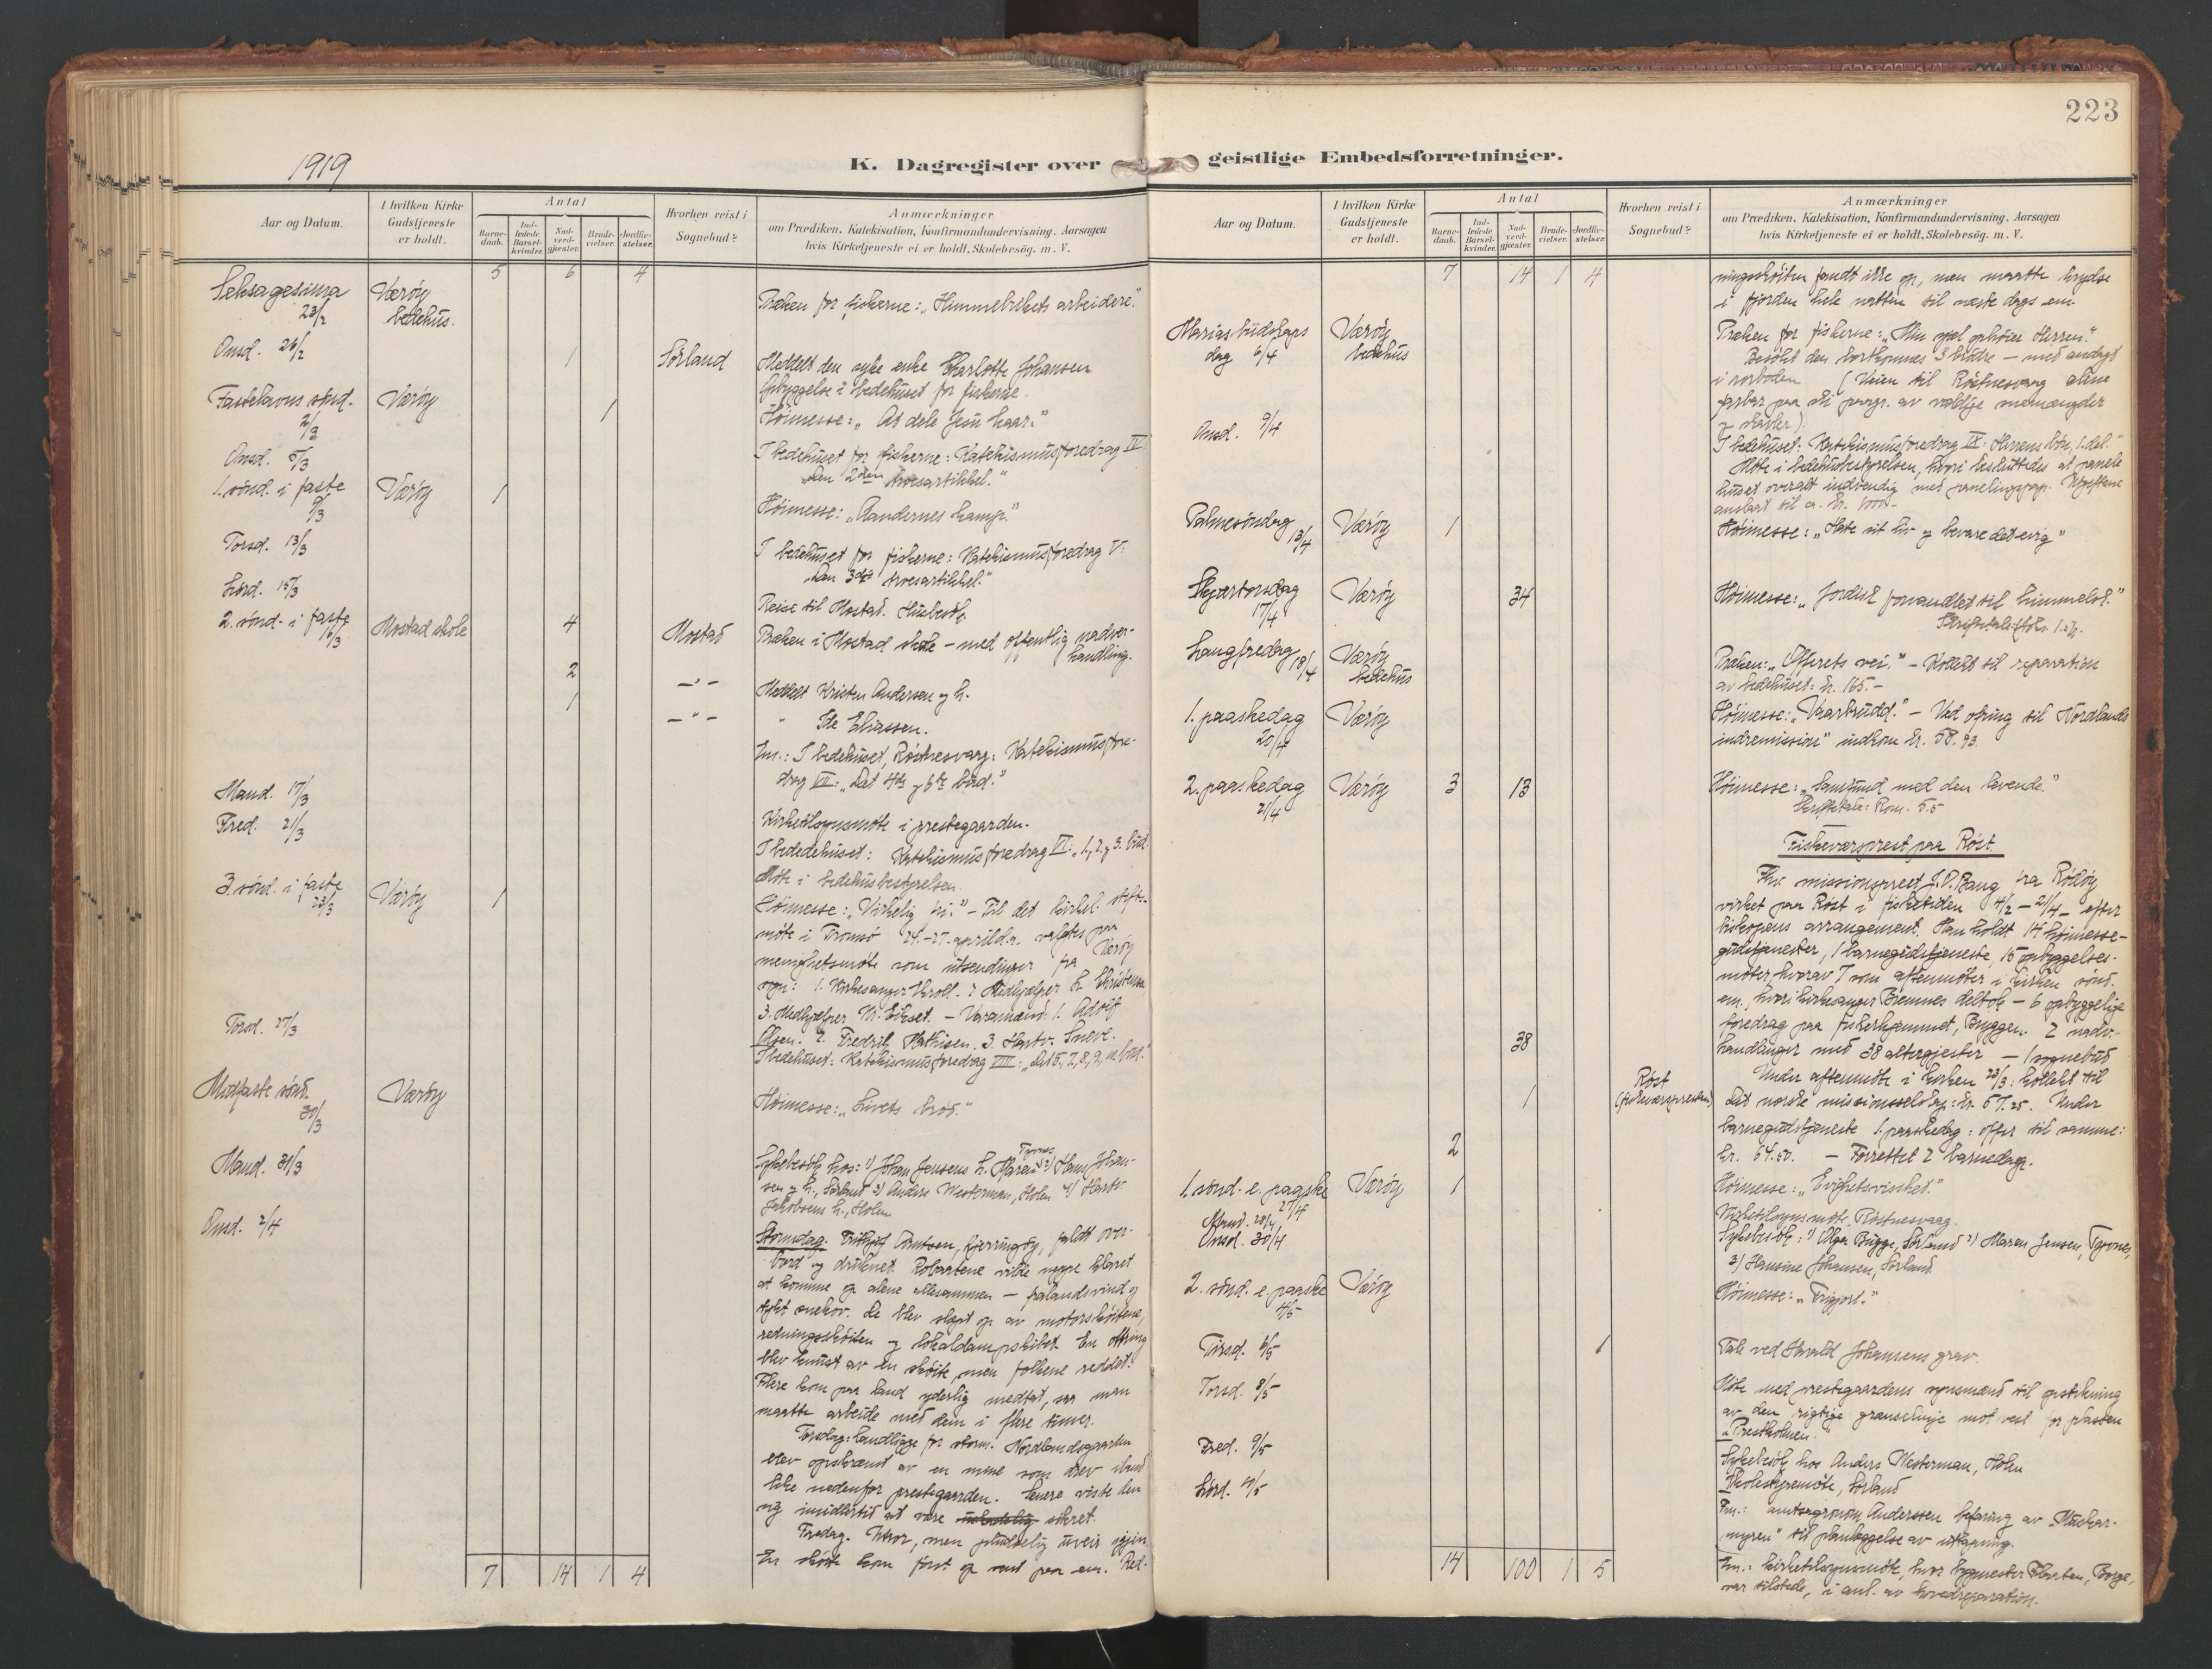 223
1919
K. Dagregister over geistlige Embedsforretninger.
Aar og Datum.
I hvilken Kirke Gudstjeneste er holdt.
Antal
Barnedaab.
Indledede Barselkvinder.
Nadverdgjester.
Brudevielser.
Jordfæstelser.
Hvorhen reist i Sognebud?
Anmærkninger
om Prædiken. Katekisation, Konfirmandundervisning. Aarsagen
hvis Kirketjeneste ei er holdt. Skolebesög. m. V.
5 6 4
Seksagesima 23/2 Værøy bedehus. Præken for fiskerne: "Himmelrikets arbeidere."
Onsd. 26/2 1 Sörland Meddelt den syke enke Charlotte Johansen
Opbyggelse i bedehuset for fiskerne.
Fastelavns sönd. 2/3 Værøy 1 Höimesse: "At dele Jesu kaar."
Onsd. 5/3 I bedehuset for fiskerne: Katekismusforedrag IV
"Den 2den trosartikkel."
1. sönd. i faste 9/3 Værøy 1 Höimesse: "Aandernes kamp."
Torsd. 13/3 I bedehuset for fiskerne: Katekismusforedrag V:
"Den 3dje trosartikkel."
Lörd. 15/3 Reise til Mostad. Husbesök.
2. sönd. i faste 16/3 Mostad skole 4 Mostad Præken i Mostad skole – med offentlig nadver-
handling.
2 – " – Meddelt Kristen Andersen og h.
1 – " – " Ide Eliassen.
Em.: I bedehuset, Röstnesvaag: Katekismusfore-
drag VII: "Det 4de og 6te bud."
Mand. 17/3 Kirketilsynsmöte i prestegaarden.
Fred. 21/3 I bedehuset: Katekismusforedrag VI: "1, 2 og 3. bud.
Möte i bedehusbestyrelsen.
3 sönd. i faste 23/3 Værøy 1 Höimesse: "Virkelig fri." – Til det kirkel. stifts-
möte i Tromsö 24.–27. april d.a. valgtes paa
menighetsmöte som utsendinger fra Værøy
sogn: 1. Kirkesanger Kroll – 2 Medhjælper L. Christensen
3. Medhjælper N. Ekset. – Varamænd: 1. Adolf
Olsen. 2. Fredrik Mathisen. 3. Hartv. Sneve.
Torsd. 27/3 I bedehuset: Katekismusforedrag VIII: "Det 5, 7, 8, 9, 10 bud."
Midfaste sönd. 30/3 Værøy Höimesse: "Livets bröd."
Mand. 31/3 Sykebesök hos: 1) Johan Jensens h. Maren Tyvnes 2) Hans Johan-
sen og h., Sörland 3) Anders Westerman, Holen 4) Hartv.
Jakobsens h., Holen
Onsd. 2/4 Stormdag. Arntsen, Kjerringöy, faldt over-
bord og druknet. Robaatene vilde neppe klaret
at komme op alene allesammen – fralandsvind og
tykt snekov. De blev slept op av motorskøitene,
redningsskøiten og lokaldampskibet. En ottring
blev knust av en skøite, men folkene reddet.
Flere kom paa land yderlig medtat, saa man
maatte arbeide med dem i flere timer.
Torsdag: landligge for storm. Nordlandsgaarden
blev opskræmt av en mine som drev iland
like nedenfor prestegaarden. Senere viste den
sig imidlertid at være sikret.
Fredag. Utror, men pludselig uveir igjen
En skøite kom først op ved paa em. Red-
7 14 1 4
Aar og Datum.
I hvilken Kirke Gudstjeneste er holdt.
Antal
Barnedaab.
Indledede Barselkvinder.
Nadverdgjester.
Brudevielser.
Jordfæstelser.
Hvorhen reist i Sognebud?
Anmærkninger
om Prædiken. Katekisation, Konfirmandundervisning. Aarsagen
hvis Kirketjeneste ei er holdt. Skolebesög. m. V.
7 14 1 4 ningsskøiten fandt ikke op, men maatte krydse
i fjorden hele natten til næste dags em.
Marias budskaps dag 6/4 Værøy bedehus Præken for fiskerne: "Min sjæl ophöier Herren."
Besökt den bortkomnes 3 brödre – med andagt
i rorboden (Veien til Röstnesvaag alene
farbar paa ski pga. av vældige snemængder
og skavler).
Onsd. 9/4 I bedehuset: Katekismusforedrag IX: Herrens bön, 1. del."
Möte i bedehusbestyrelsen, hvori besluttedes at panele
huset overalt indvendig med panelingspap. Utgiftene
anslaat til ca. kr. 1000.–
Palmesöndag 13/4 Værøy 1 Höimesse: "Hate sit liv og bevare det evig"
Skjærtorsdag 17/4 Værøy 34 Höimesse: "Jordisk forvandlet til himmelsk."
Langfredag 18/4 Værøy bedehus Præken: "Offerets vei." – Kollekt til reparation
av bedehuset: kr. 165.–
1. paaskedag 20/4 Værøy Höimesse: "Vaarbrudd." – Ved ofring til "Nordlands
indremission" indkom kr. 58.93
2. paaskedag 21/4 Værøy 3 13 Höimesse: "Samfund med den levende."
Skriftetale: Rom. 5.5
Fiskeværsprest paa Röst.
Fhv. missionsprest J.O. Bang fra Rödöy
virket paa Röst i fisketiden 4/2 – 21/4 – efter
biskopens arrangement. Han holdt 14 höimesse-
gudstjenester, 1 barnegudstjeneste, 15 opbyggelses-
möter, hvorav 7 som aftenmöter i kirken sönd.
em, hvori kirkesanger Bremnes deltok – 6 opbyggelige
foredrag paa fiskerhjemmet, Bryggen. 2 nadv.-
38 handlinger med 38 altergjester – 1 sognebud
Under aftenmöte i kirken 23/3: kollekt til
1 Röst (fiskeværspresten) Det norske missionsselskap: kr. 57.25. Under
barnegudstjeneste 1. paaskedag: offer til samme:
2 kr. 64.50. – Forrettet 2 barnedaap.
1. sönd. e. paaske 27/4 Værøy 1 Höimesse: "Evighetsvisshet."
Mand. 28/4 Kirketilsynsmöte, Röstnesvaag.
Onsd. 30/4 Sykebesök: 1) Olga Bugge, Sörland 2) Maren Jensen, Tyvnes,
3) Hansine Johansen, Sörland
2. sönd. e. paaske 4/5 Værøy Höimesse: "Frigjort."
Tirsd. 6/5 1 Tale ved Harald Johansens grav.
Torsd. 8/5 Möte med prestegaardens opsynsmænd til opstikning
av den rigtige grænselinje mot vest for pladsen
"Prestholmen."
Fred. 9/5 Sykebesök hos Anders Westerman, Holen
Skolestyremöte, Sörland
Lörd. 10/5 Fm.: amtsagronom Anderssen befaring av
myren" til planlæggelse av uttapning.
Em.: kirketilsynsmöte, hvor bygmester
var tilstede, i anl. av hovedreparation.
14 100 1 5